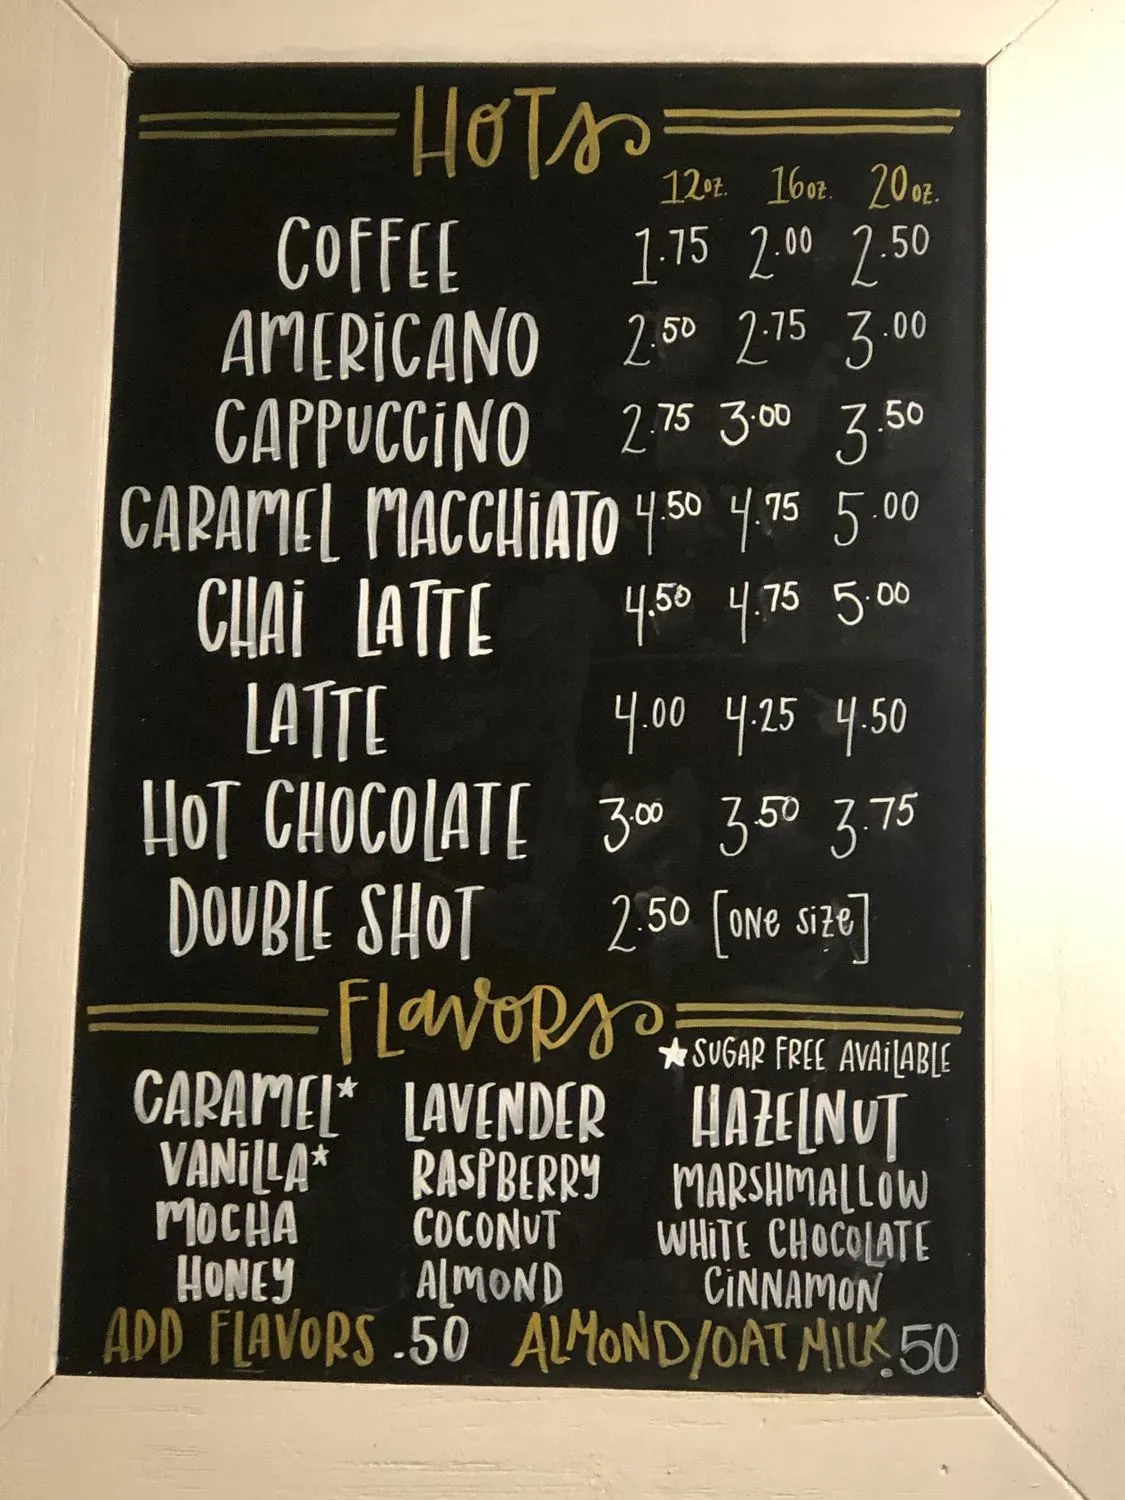 HOTS
12oz. 16oz. 20oz.
COFFEE 1.75 2.00 2.50
AMERICANO 2.50 2.75 3.00
CAPPUCCINO 2.75 3.00 3.50
CARAMEL MACCHIATO 4.50 4.75 5.00
CHAI LATTE 4.50 4.75 5.00
LATTE 4.00 4.25 4.50
HOT CHOCOLATE 3.00 3.50 3.75
DOUBLE SHOT 2.50 [ONE SIZE]
FLAVORS
★ SUGAR FREE AVAILABLE
CARAMEL★ LAVENDER HAZELNUT
VANILLA★ RASPBERRY MARSHMALLOW
MOCHA COCONUT WHITE CHOCOLATE
HONEY ALMOND CINNAMON
ADD FLAVORS .50 ALMOND/OAT MILK .50